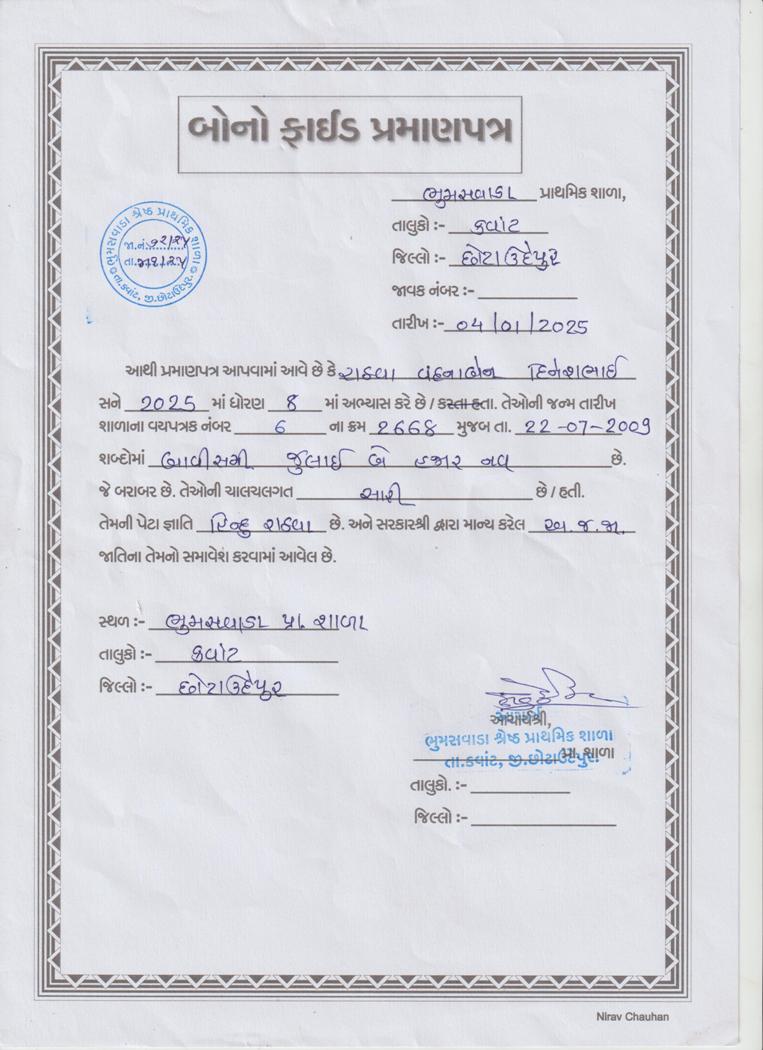 બોનો ફાઈડ પ્રમાણપત્ર
ભુમસવાડા પ્રાથમિક શાળા,
તાલુકો :- કવાંટ
જિલ્લો :- છોટાઉદેપુર
જાવક નંબર :-
તારીખ :- 04/01/2025
ભુમસવાડા શ્રેષ્ઠ પ્રાથમિક શાળા
જા.નં.
તા.
તા.કવાંટ, જી.છોટાઉદેપુર
આથી પ્રમાણપત્ર આપવામાં આવે છે કે રાઠવા વંદનાબેન દિનેશભાઈ
સને 2025 માં ધોરણ 8 માં અભ્યાસ કરે છે / કરતા હતા. તેઓની જન્મ તારીખ
શાળાના વયપત્રક નંબર 6 ના ક્રમ 2668 મુજબ તા. 22-07-2009
શબ્દોમાં બાવીસમી જુલાઈ બે હજાર નવ છે.
જે બરાબર છે. તેઓની ચાલચલગત સારી છે / હતી.
તેમની પેટા જ્ઞાતિ હિન્દુ રાઠવા છે. અને સરકારશ્રી દ્વારા માન્ય કરેલ અ.જ.જા.
જાતિના તેમનો સમાવેશ કરવામાં આવેલ છે.
સ્થળ :- ભુમસવાડા પ્રા. શાળા
તાલુકો :- કવાંટ
જિલ્લો :- છોટાઉદેપુર
આચાર્યશ્રી,
ભુમસવાડા શ્રેષ્ઠ પ્રાથમિક શાળા
પ્રા. શાળા
તા.કવાંટ, જી.છોટાઉદેપુર.
તાલુકો. :-
જિલ્લો :-
Nirav Chauhan